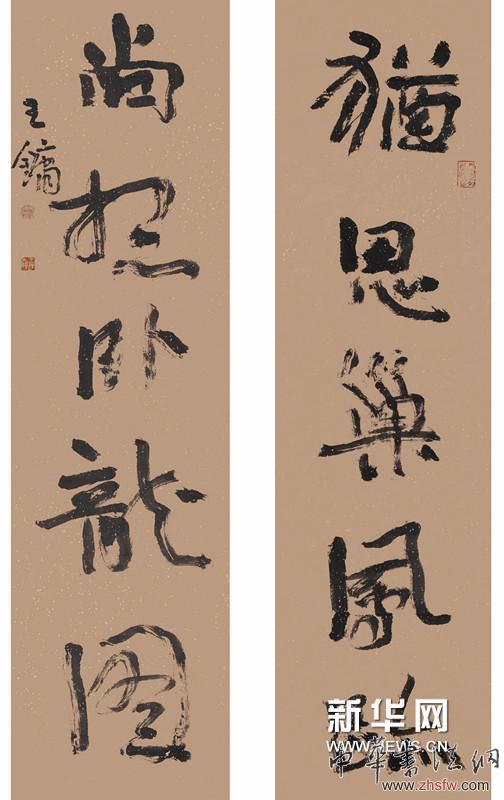 猶思巢鳳
尚想卧龍圖
王鏞
新华网
WWW.NEWS.CN
中華書法網
www.zhsfw.com